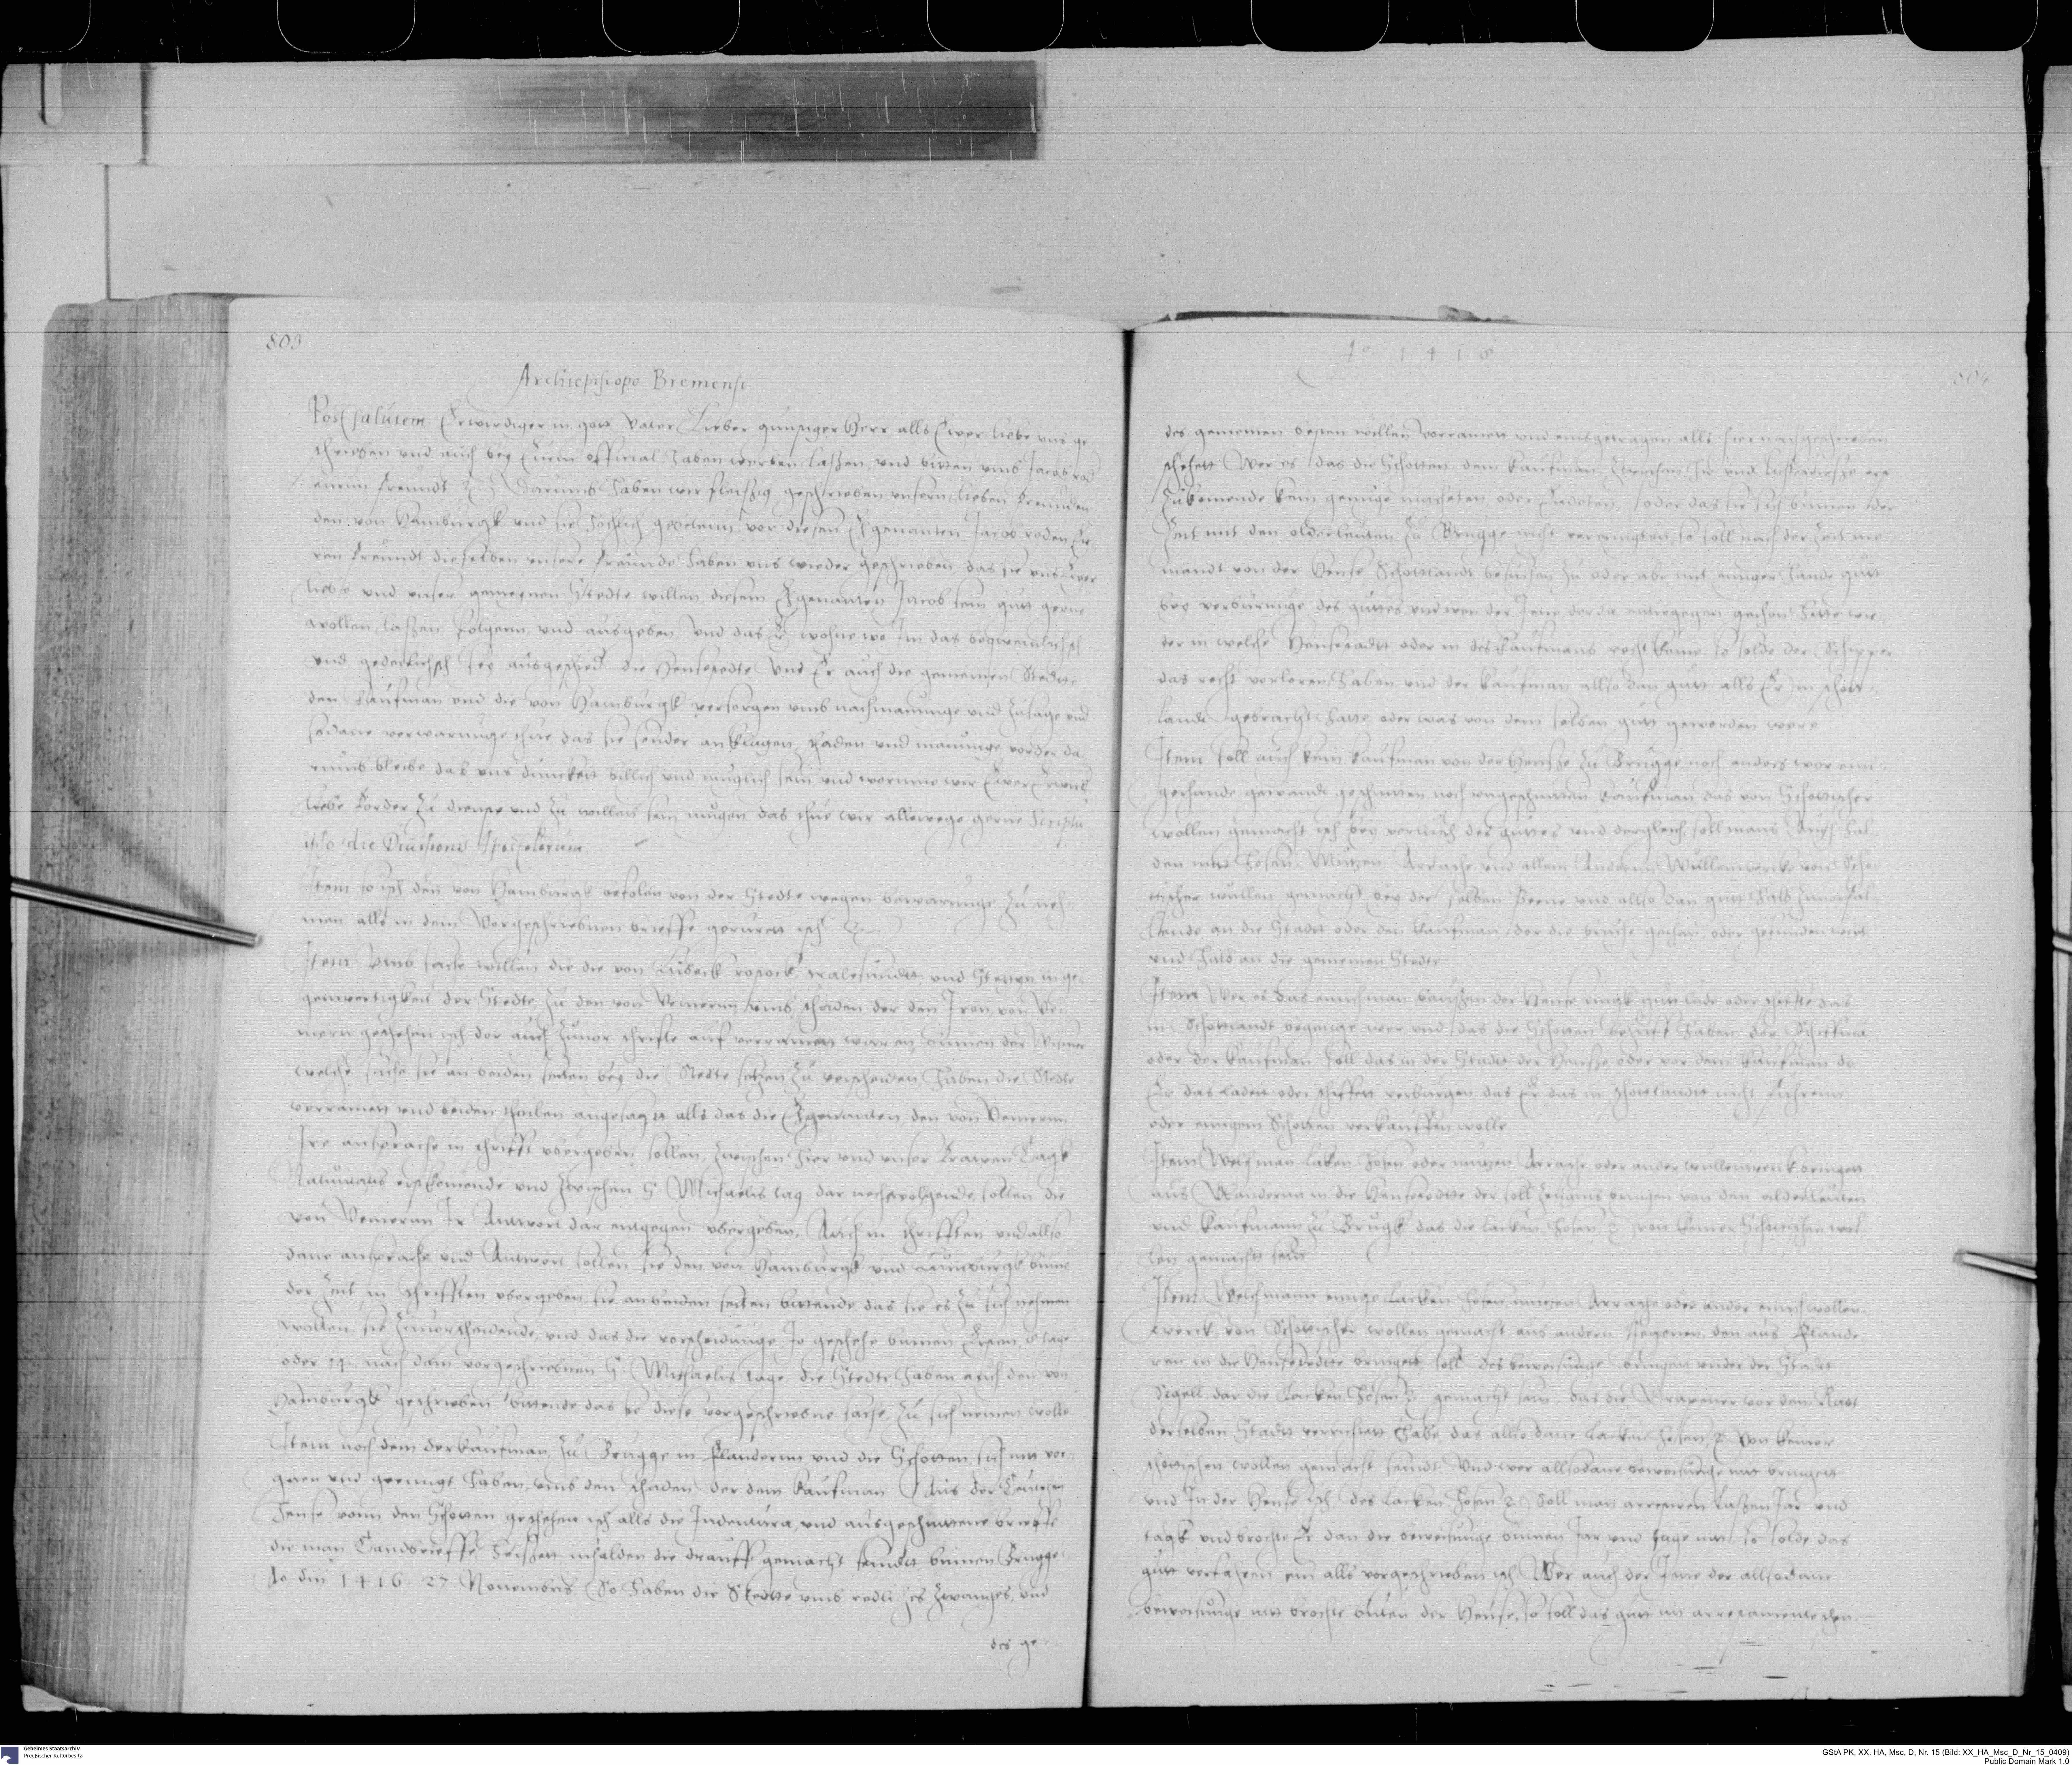 803
Archiepiscopo Bremensi
Post salutem Erwirdiger in gott Vater Lieber gunstiger Herr alls Ewer liebe vns ge-
schrieben vnd auch bey Eurm official haben werben laßen, und bitten umb Jacob rod
eurem freundt &c Darumb haben wir fleißig geschrieben unsern lieben freunden
den von Hamburgk und sie hochlich gebetenn vor diesen Ehgenanten Jacob roden Eu-
ren freundt, dieselben unsere freunde haben uns wieder geschrieben, das sie umb Ewer
liebe und unser gemeenen Stedte willen, diesem Ehgenanten Jacob sein gutt gerne
wollen laßen folgenn, und ausgeben, und das Er wohne wo Im das bequemlichst
und gedeilichst sey ausgeschied die Hensestedte Und Er auch die gemeinen Stedtte
den kaufman und die von Hamburgk versorgen umb nachmanunge und zusage und
sodane verwarunge thue, das sie sonder anklagen, schaden und manunge vorder da-
rumb bleibe, dat uns dunckett billich und muglich sein, und worinne wir Ewer Erwird.
liebe forder zu dienste und zu willen sein mugen das thue wir allewege gerne Scriptu
ipso die Divisionis Apostolorum
Item so ist den von Hamburgk befolen von der Stedte wegen bewarunge zu neh-
men, alls in dem Vorgeschriebnen brieffe gerurett ist &c
Item Umb sache willen die die von Lubeck rostock Stralesundtt, und Stettyn in ge-
genwertigkeit der Stedte, zu den von Vemeren umb schaden der den Iren von Ve-
mern geschehen ist der auch zuvor schrifte auf verramett waren, binnen der Wismer
welche sache sie an beiden seiten bey die Stedte setzen zu verscheiden, haben die Stedte
verramett und beiden theilen angesagtt, alls das die Ehgenanten, den von Vemeren
Ire ansprache in schrifft ubergeben sollen, zwischen hier und unser frawen Tagk
Nativitatis erstkomende und zwischen S. Michaelis tag dar nechstvolgende, sollen die
von Vemeren Ir Antwort dar entgegen ubergeben, Auch in schrifften und allso
dane ansprache und Antwort sollen sie den von Hamburgk und Luneburgk binnen
der Zeit in schrifften ubergeben, sie an beiden seiten bittende, das sie es zu sich nehmen
wollen, sie zuuorscheidende, und das die vorscheidunge Jo geschehe binnen Ersten, 8 tage
oder 14. nach dem vorgeschriebnen S. Michaelis tage, die Stedte haben auch den von
Hamburgk geschrieben, bittende, das sie diese vorgeschriebne sache, zu sich nemen wolle
Item noch dem der kaufman, zu Brugge in flanderen und die Schotten, sich mit vor-
genen und geeinigt haben, umb den schaden der dem kaufman Aus der Teutschen
Hense vonn den Schotten geschehen ist alls die Indentura, und ausgeschnittene brieffe
die man Tandbrieffe heissett, inhalden die drauff gemacht seindtt, binnen Brugge
Ao dni 1416. 27 Nouembris So haben die Stedtte umb redliches Zwanges, und
des ge-
Ao 1418
804
des gemeinen besten willen verramett und eingetragen alls hier nachgeschrieben
stehett Wer es das die Schotten dem kaufman zwischen hir und lichtmesse erst
zukomende kein genuge machten, oder theten, oder das sie sich binnen der
Zeit mit den olderleuten zu Brugge nicht vereinigten, so soll nach der zeit nie-
mandt von der Hense Schottlandt besuchen zu oder abe mit eniger hande gutt
bey verburunge des guttes, und wen der Jene der da entegegen gethon hette wie-
der in welche Hensestadtt oder in des kaufmans recht keme, so solde der Schepper
das recht vorloren haben und der kaufman allso dan gutt alls Er in schott-
landt gebracht hatte oder was von dem selben gutt geworden were
Item soll auch kein kaufman von der Hense zu Brugge, noch anders wor eini-
gerhande gewande geschnitten noch ungeschnitten kaufman das von Schottischer
wollen gemacht ist bey verlust des guttes und dergleich, soll mans Auch hal
den mitt hosen, Mutzen Arrasche, und allem Anderen Wullenwercke von Scho-
ttischer wullen gemacht bey der selben Peene und allso dan gutt halb zuuorfal-
lende an die Stadtt oder den kaufman, dor die bruche geschen, oder gefunden wirt
und halb an die gemeinen Stedte
Item Wer es das einich man baussen der Hense einigk gutt lude oder schiffte das
in Schottlandt begenge wer, und das die Schotten behuff haben, der Schiffman
oder der kaufman, soll das in der Stadtt der Hense, oder vor dem kaufman do
Er das ladett oder schiffett verburgen, das Er das in schottlandtt nicht fuhrenn
oder einigem Schotten verkauffen wolle
Item Welch man laken, hosen oder mutzen, Arrasche, oder ander wullenwerck bringett
aus flanderen in die Hensestedtte der soll zeugnis bringen von den alderleuten
und kaufmann zu Brugk das die lacken, hosen &c von keiner Schottischen wol-
len gemacht sein
Item Welch mann einige lacken hosen, mutzen Arrasche oder ander einich wollen-
werck, von Schottischer wollen gemacht, aus andern Jegenen, den aus flande-
ren in die Hensestedtte bringett, soll des beweisunge bringen under der Stadtt
Segell, dar die lacken, hosen &c gemacht sein, das die Drapener vor dem Ratt
derselben Stadtt verrichtett habe das allso dane lacken hosen, &c von keiner
schottischen wollen gemacht seindt Und wer allsodane beweisunge nitt bringett
und In der Hense ist, des lacken hosen &c Soll man arresteren laßen Jar und
tagk und brochte Er dan die beweisunge binnen Jar und tage nitt, so solde das
gutt verfahren sein alls vorgeschrieben ist Wer auch der Jene der allsodane
beweisunge nitt brochte buten der Hense, so soll das gutt im arrestamente sten